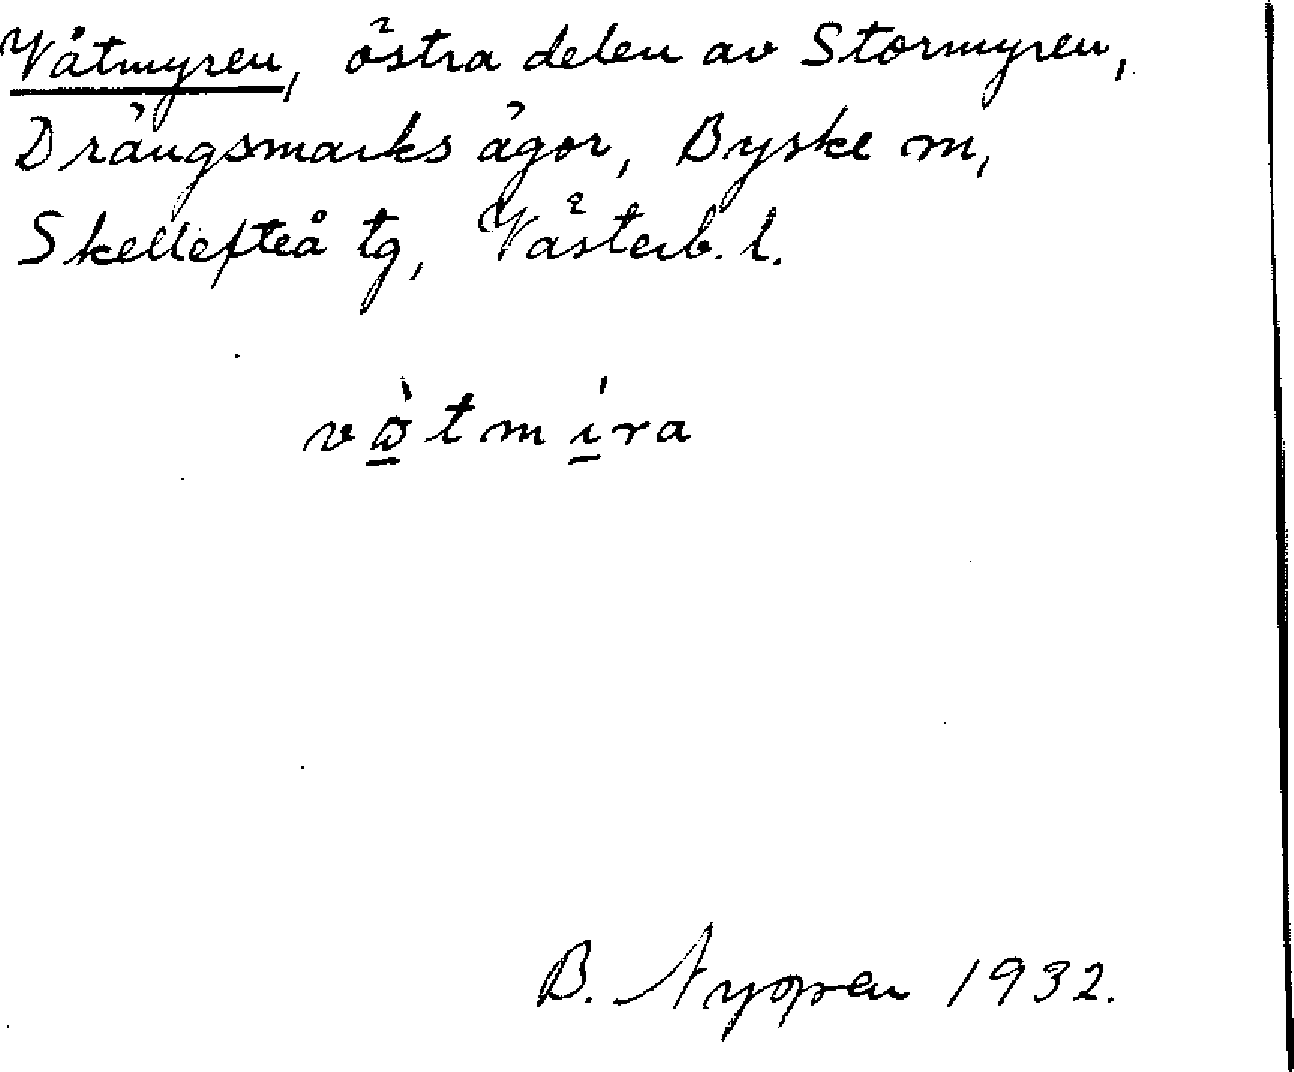 Våtmyren, östra delen av Stormyren,
Drängsmarks ägor, Byske sn,
Skellefteå tg, Västerb. l.
vò̱tmí̱ra
B. Nygren 1932.